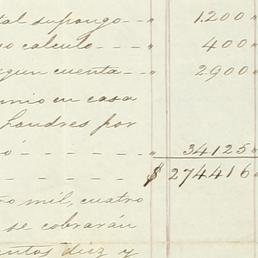 tal supongo - - " 1.200 "
o calculo - - - " 400 "
egun cuenta - - " 2.900 "
mio en casa
Londres por
ó - - - - - " 34125 "
- - - - - $ 274416 "
mil, cuatro
se cobrarán
entos diez y